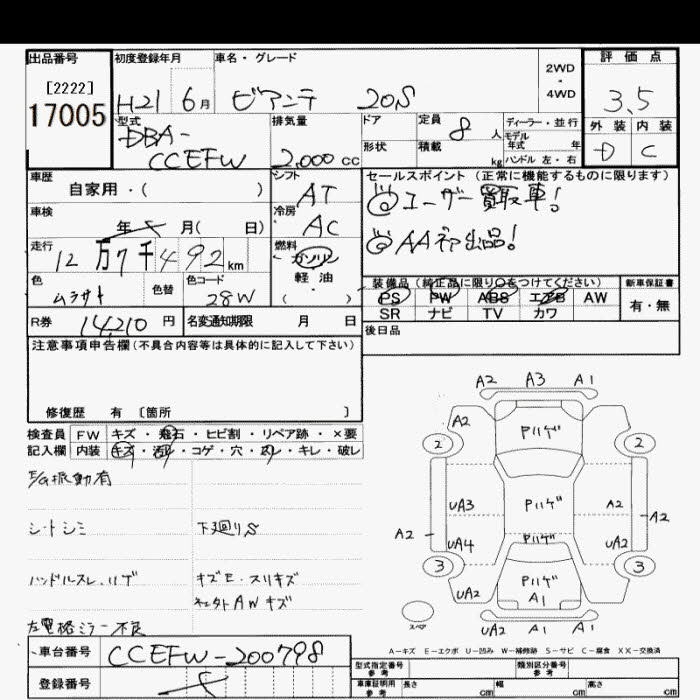 出品番号
[2222]
17005
初度登録年月
H21 6月
車名・グレード
ビアンテ 20S
2WD
・
4WD
評価点
3.5
外装 内装
D C
型式
DBA-
CCEFW
排気量
2,000 cc
ドア
形状
定員
8 人
積載
kg
ディーラー・並行
モデル
年式 年
ハンドル 左・右
車歴
自家用・( )
シフト
AT
車検
年 月( 日)
冷房
AC
走行
12万7千492km
燃料
ガソリン
軽・油
( )
色
ムラサキ
色替
色コード
28W
R券
14,210 円
名変通知期限 月 日
セールスポイント (正常に機能するものに限ります)
◎ユーザー買取車!
◎AA初出品!
装備品 (純正品に限り○をつけてください)
PS PW ABS エアB AW
SR ナビ TV カワ
新車保証書
有・無
後日品
注意事項申告欄(不具合内容等は具体的に記入して下さい)
修復歴 有 〔箇所 〕
検査員
記入欄
FW キズ・飛石・ヒビ割・リペア跡・×要
内装 キズ・汚れ・コゲ・穴・スレ・キレ・破レ
E/G振動有
シートシミ
下廻りS
ハンドルスレ、ハゲ
キズE・スリキズ
社外AWキズ
左電格ミラー不良
車台番号
CCEFW-200798
登録番号
A2 A3 A1
A2
Pハゲ
2 2
UA3
Pハゲ
A2
A2
A2
UA4
Pハゲ
UA2
3 3
Pハゲ
UA2
A1
UA2
スペア
UA2 A1 A1
A-キズ E-エクボ U-凹み W-補修跡 S-サビ C-腐食 XX-交換済
型式指定番号
参考
類別区分番号
参考
車庫証明用
参考
長さ cm
幅 cm
高さ cm